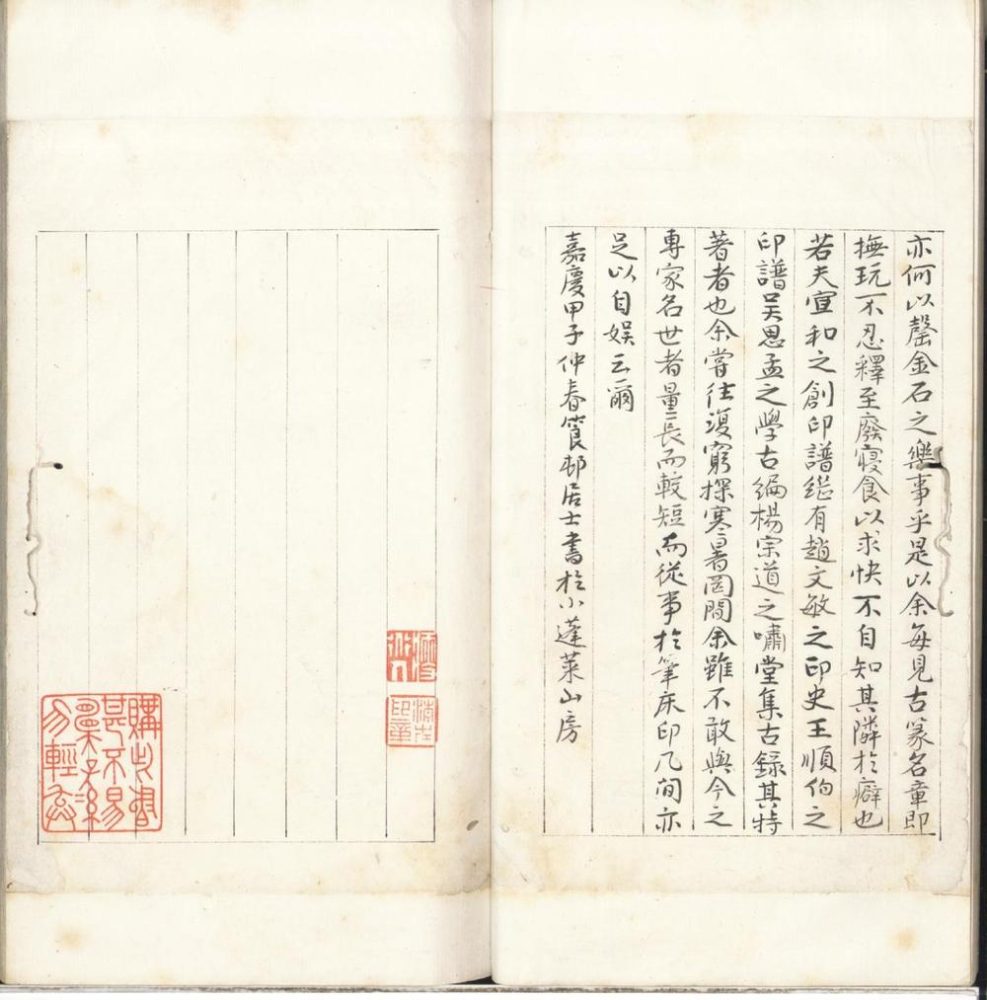 亦何以罄金石之樂事乎是以余每見古篆名章即
撫玩不忍釋至廢寢食以求快不自知其隣於癖也
若夫宣和之創印譜繼有趙文敏之印史王順伯之
印譜吴思孟之學古編楊宗道之嘯堂集古錄其特
著者也余嘗往復窮探寒暑罔間余雖不敢與今之
專家名世者量長而較短而從事於筆床印几间亦
足以自娱云爾
嘉慶甲子仲春筤邨居士書於小蓬萊山房
購此書
甚不易
遺子孫
勿輕棄